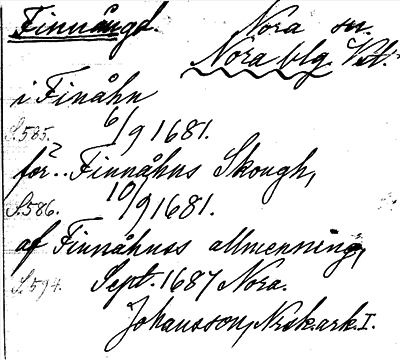 Finnångd. Nora sn.
Nora blg. Vstm.
i Finåhn
S.585. 6/9 1681.
för? Finnåhns Skough,
S.586. 10/9 1681.
af Finnåhnss allmenning,
S.594. Sept. 1687 Nora.
Johansson, Nrsk.ark.I.